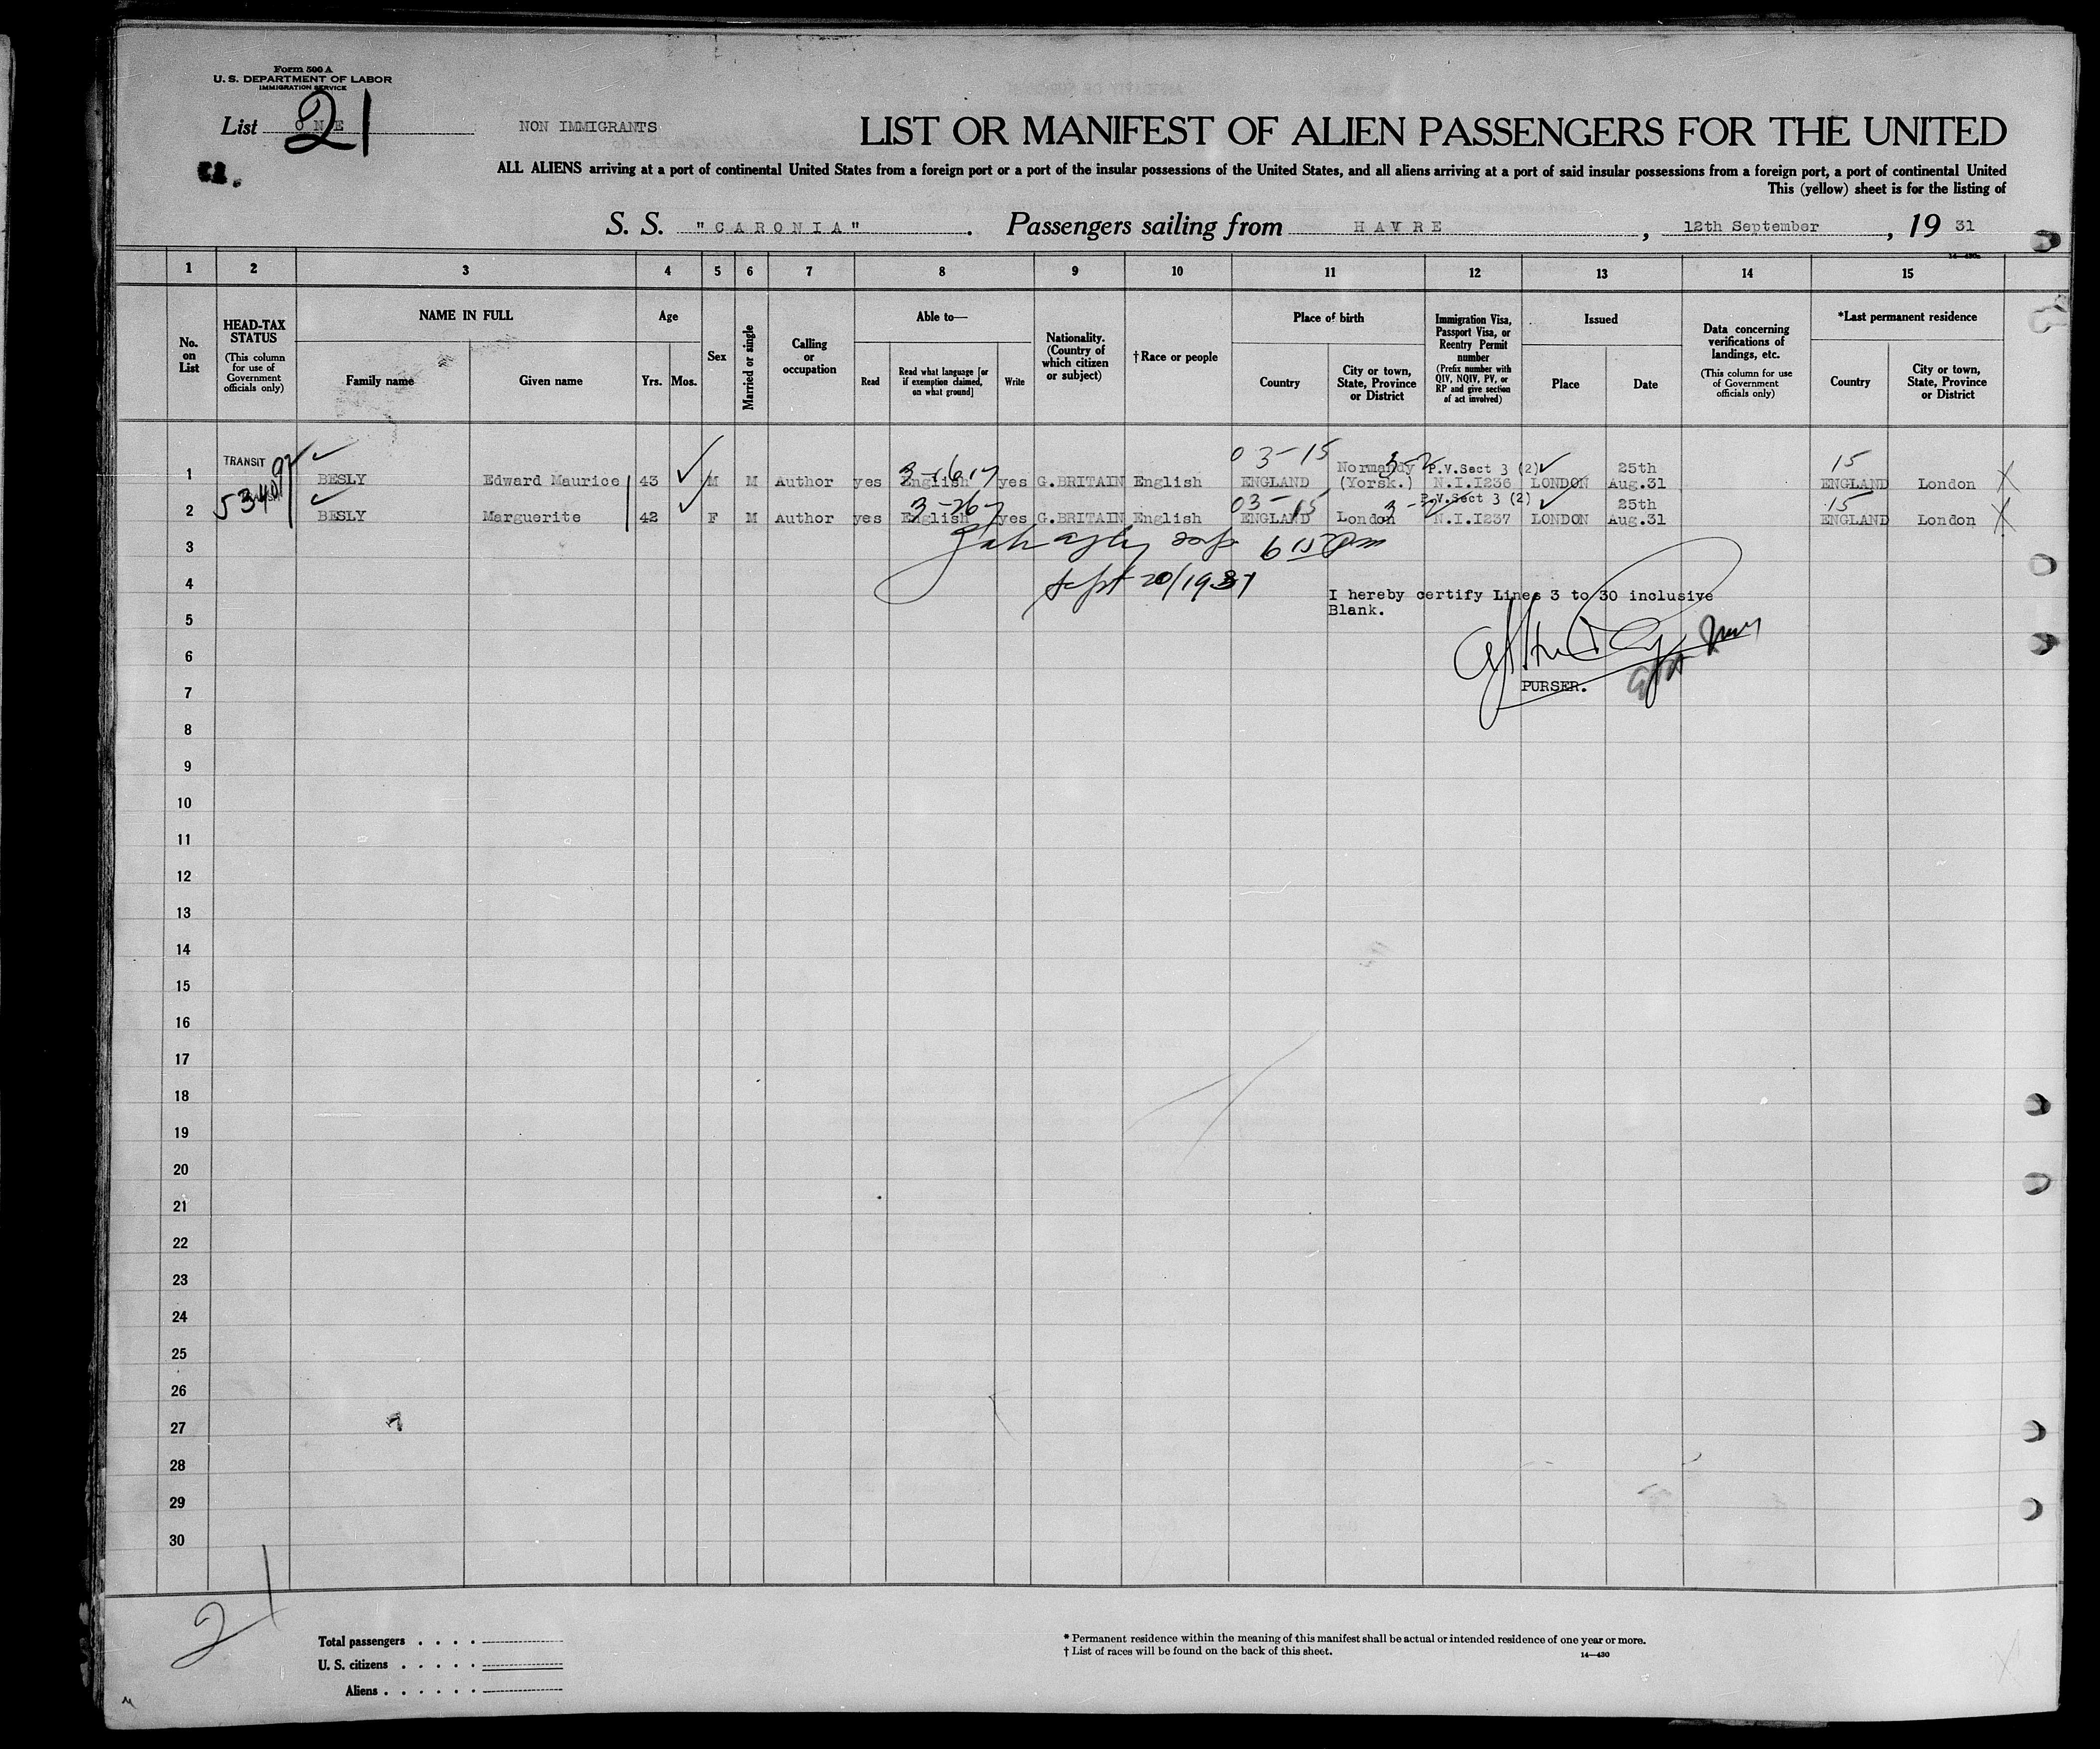 Form 500 A
U. S. DEPARTMENT OF LABOR
IMMIGRATION SERVICE
List ONE 21
NON IMMIGRANTS
LIST OR MANIFEST OF ALIEN PASSENGERS FOR THE UNITED
ALL ALIENS arriving at a port of continental United States from a foreign port or a port of the insular possessions of the United States, and all aliens arriving at a port of said insular possessions from a foreign port, a port of continental United
This (yellow) sheet is for the listing of
S. S. "CARONIA". Passengers sailing from HAVRE, 12th September, 19 31
14—430a
1 2 3 4 5 6 7 8 9 10 11 12 13 14 15
No. on List
HEAD-TAX STATUS
(This column for use of Government officials only)
NAME IN FULL
Family name
Given name
Age
Yrs. Mos.
Sex
Married or single
Calling or occupation
Able to—
Read
Read what language [or if exemption claimed, on what ground]
Write
Nationality. (Country of which citizen or subject)
†Race or people
Place of birth
Country
City or town, State, Province or District
Immigration Visa, Passport Visa, or Reentry Permit number
(Prefix number with QIV, NQIV, PV, or RP and give section of act involved)
Issued
Place
Date
Data concerning verifications of landings, etc.
(This column for use of Government officials only)
*Last permanent residence
Country
City or town, State, Province or District
03-15
15
1 TRANSIT BESLY Edward Maurice 43 M M Author yes English yes G.BRITAIN English ENGLAND Normandy (Yorsk.) P.V.Sect 3 (2) N.I.I236 LONDON 25th Aug.31 ENGLAND London X
5340
3-26
03-15
15
2 BESLY Marguerite 42 F M Author yes English yes G.BRITAIN English ENGLAND London P.V.Sect 3 (2) N.I.I237 LONDON 25th Aug.31 ENGLAND London X
3
6 15 pm
4
Sept 20/1931
I hereby certify Lines 3 to 30 inclusive
Blank.
5
6
7
PURSER.
8
9
10
11
12
13
14
15
16
17
18
19
20
21
22
23
24
25
26
27
28
29
30
21
Total passengers . . . .
U. S. citizens . . . . .
Aliens . . . . . .
* Permanent residence within the meaning of this manifest shall be actual or intended residence of one year or more.
† List of races will be found on the back of this sheet.
14—430